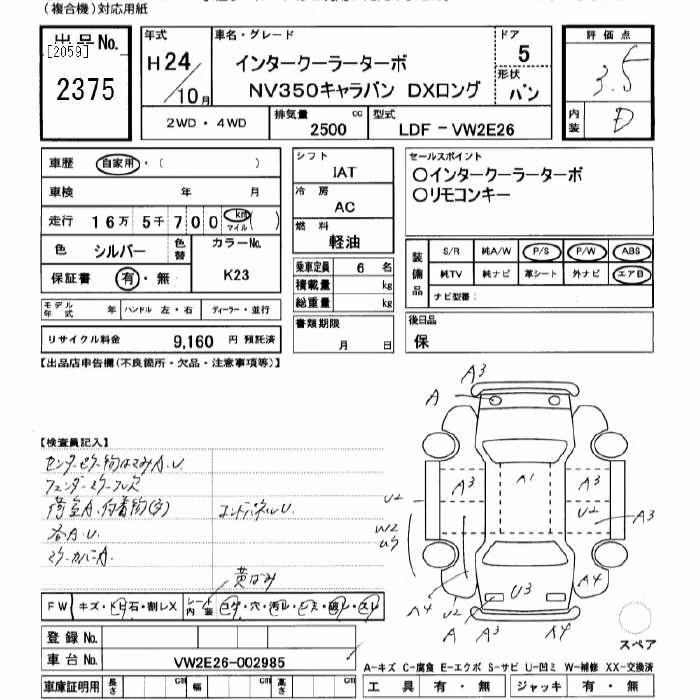 (複合機)対応用紙
出品No.
[2059]
2375
年式
H24/10月
車名・グレード
インタークーラーターボ
NV350キャラバン DXロング
ドア
5
形状
バン
評価点
3.5
内装
D
2WD・4WD
排気量 2500 cc
型式
LDF-VW2E26
車歴 自家用・( )
車検 年 月
走行 16万 5千700 km マイル ( )
色 シルバー 色替
カラーNo.
K23
保証書 有・無
モデル年式 年 ハンドル 左・右 ディーラー・並行
リサイクル料金 9,160 円 預託済
シフト
IAT
冷房
AC
燃料
軽油
乗車定員 6 名
積載量 kg
総重量 kg
書類期限
月 日
セールスポイント
○インタークーラーターボ
○リモコンキー
装備品
S/R 純A/W P/S P/W ABS
純TV 純ナビ 革シート 外ナビ エアB
ナビ型番:
後日品
保
【出品店申告欄(不良箇所・欠品・注意事項等)】
【検査員記入】
荷室A.付着物(多)
各A.U.
コンパネルU.
A3
A
A1
A3
A3
U2
U2
A3
W2
U3
U3
A4
U2
A4
A
A3
A4
スペア
FW キズ・トビ石・割レX シート内装 コゲ・穴・汚レ・シミ・破レ・スレ
登録No.
車台No. VW2E26-002985
車庫証明用 長さ cm 幅 cm 高さ cm
A-キズ C-腐食 E-エクボ S-サビ U-凹ミ W-補修 XX-交換済
工具 有・無 ジャッキ 有・無